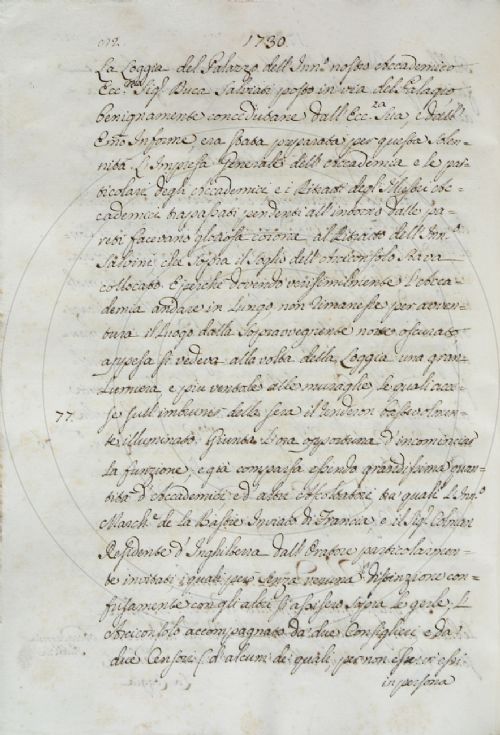 1730.
La Loggia del Palazzo dell'Inn.º nostro Accademico
Ecc.mo Sig.r Duca Salviati posto in via del Palagio
benignamente concedutane dall'Ecc.za Sua, e dall'
Em̃o Informe, era stata preparata per questa solen=
nità. L'Impresa Generale dell'Accademia e le par=
ticolari degli Accademici e i Ritratti degl'Illustri Ac=
cademici trapassati pendenti all'intorno dalle pa=
reti facevano gloriosa corona al Ritratto dell'Inn.º
Salvini che sopra il soglio dell'Arciconsolo stava
collocato. E perchè dovendo verisimilmente l'Acca=
demia andare in lungo non rimanesse per avven=
tura il luogo dalla sopravvegnente notte oscurato
appesa si vedeva alla volta della Loggia una gran
Lumiera, e più ventole alle muraglie, le quali acce=
se sull'imbrunir della sera il renderon bastevolmen=
77. te illuminato. Giunta l'ora opportuna d'incominciar
la funzione, e già comparsa essendo grandissima quan=
tità d'Accademici ed altri Ascoltatori tra quali l'Inn.º
March.e de la Bastie Inviato di Francia, e il Sig.r Colman
Residente d'Inghilterra dall'Oratore particolarmen=
te invitati i quali però senza veruna distinzione con=
fusamente con gli altri s'assisero sopra le sedie. L'
Arciconsolo accompagnato da due Consiglieri, e da
due Censori (d'alcuni de' quali per non esservi essi
in persona